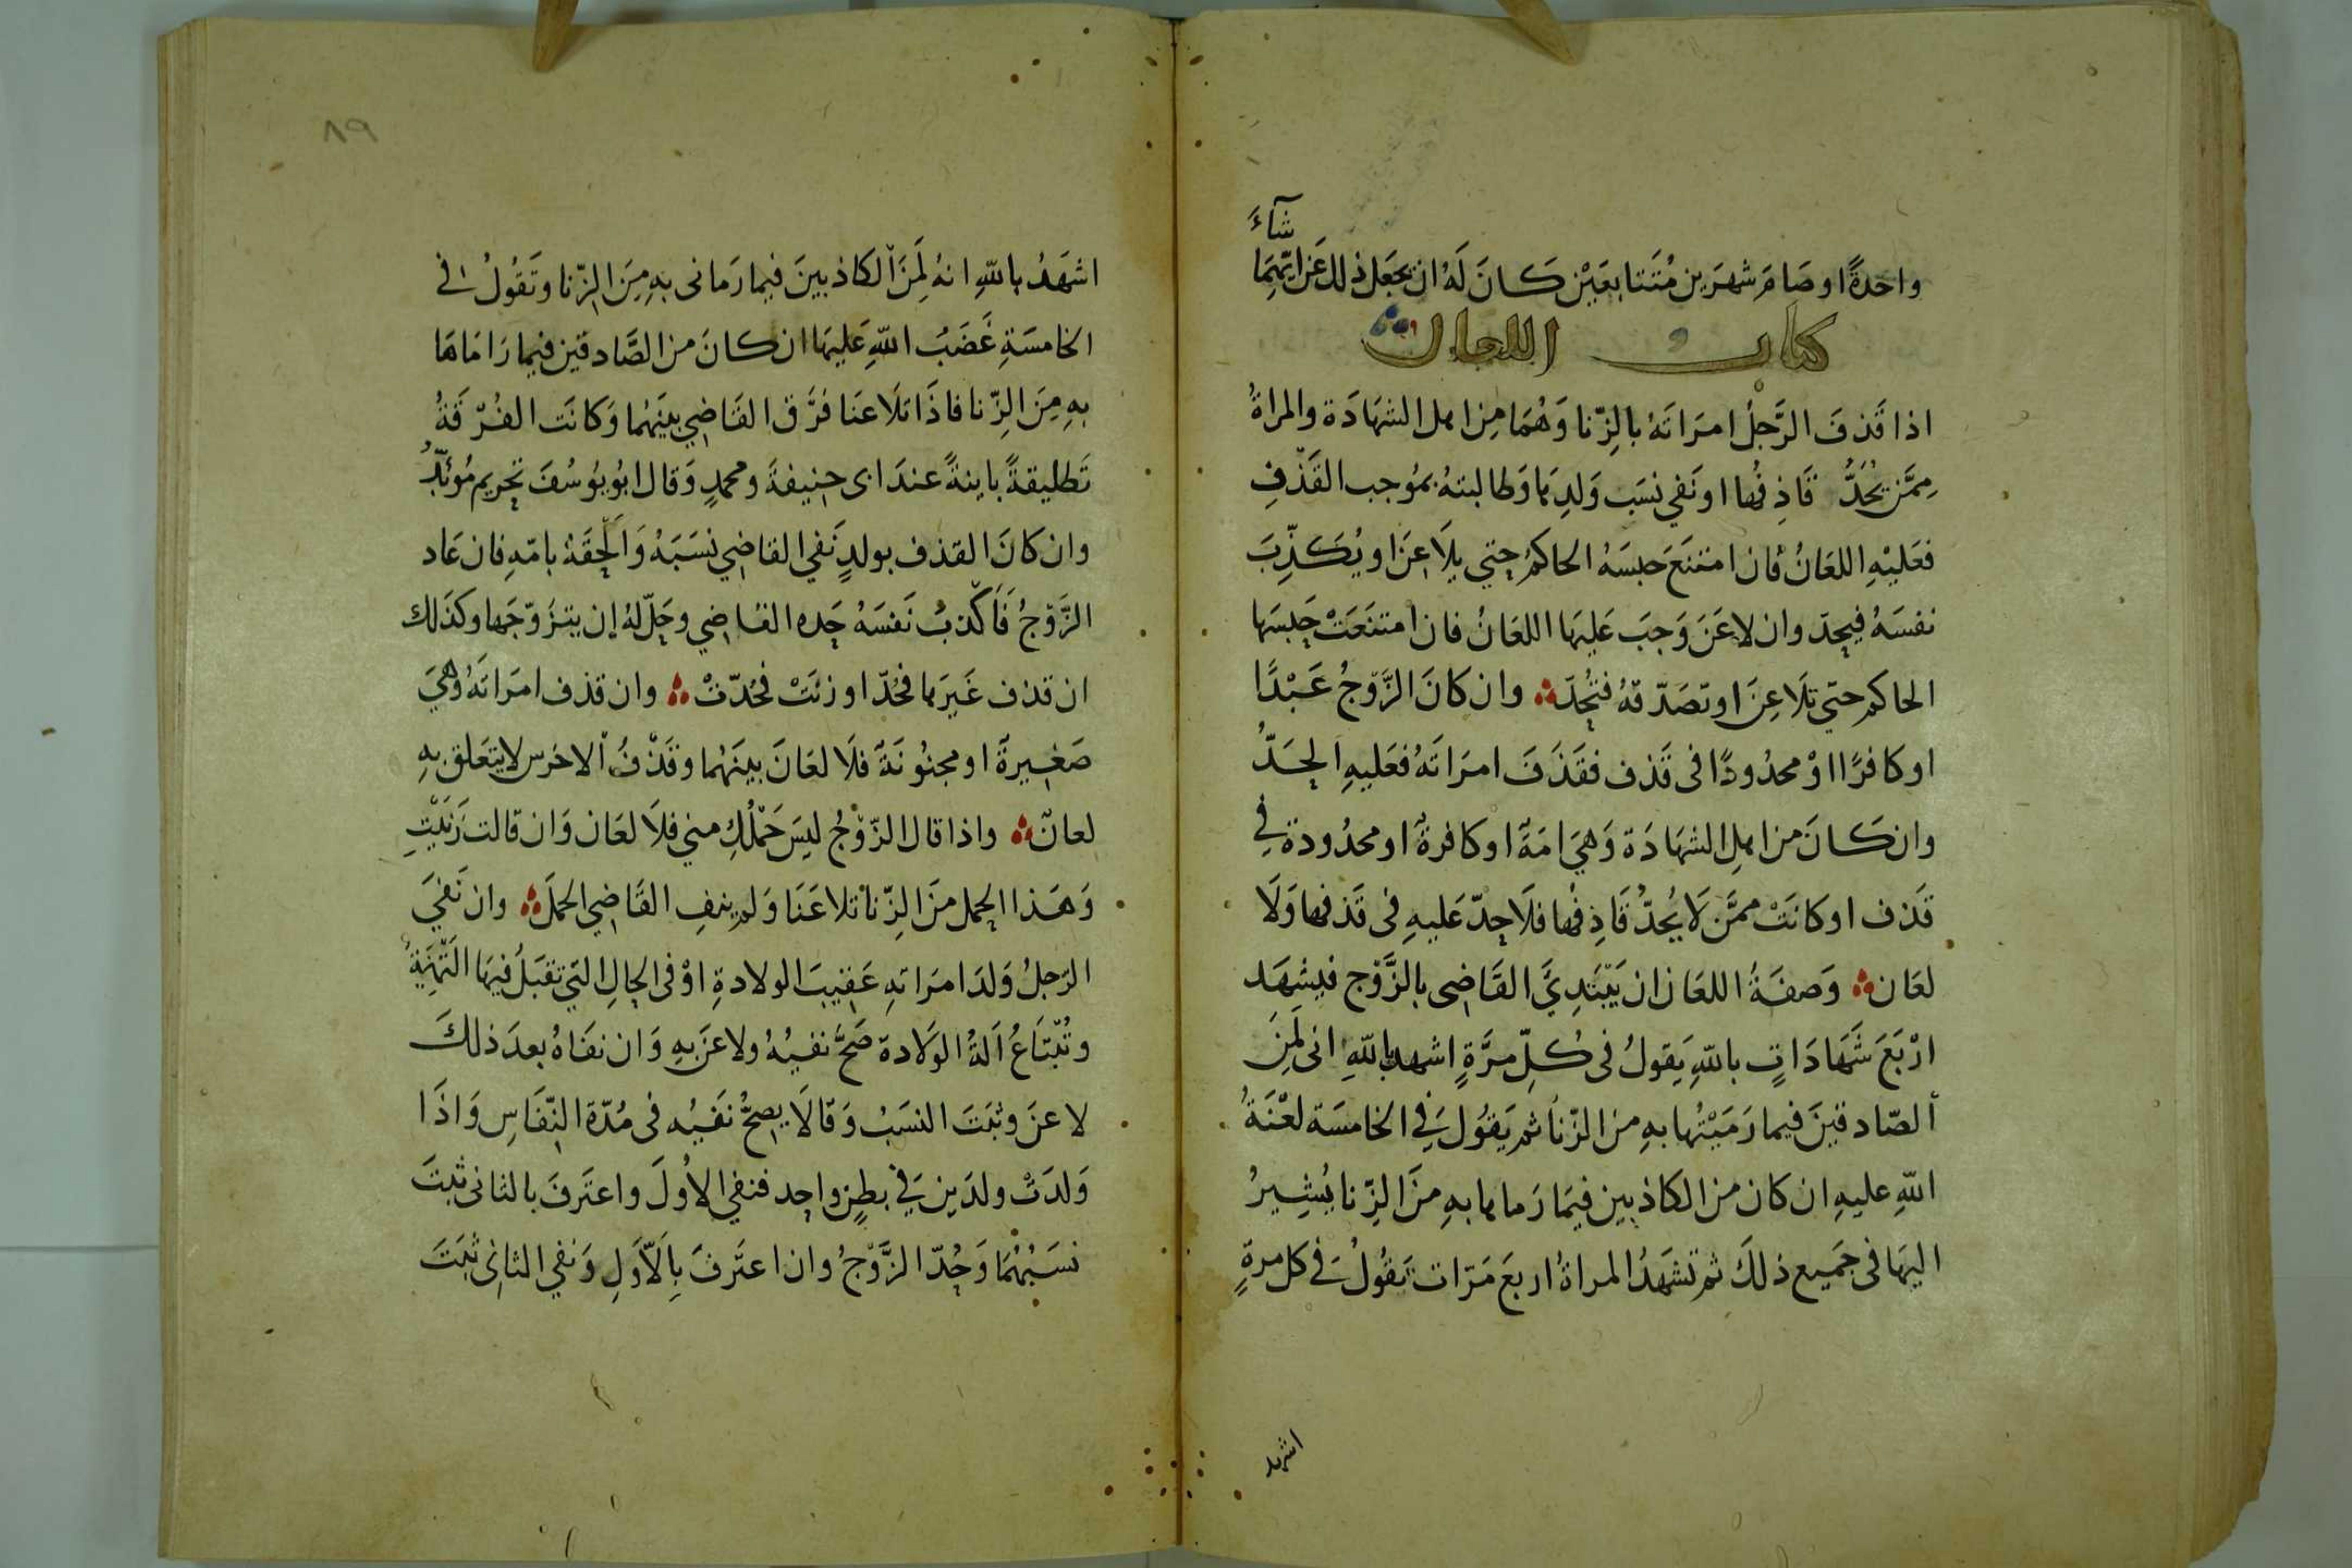 شآءَ
واحدةً او صَامَ شهرَين مُتَتابعَيْن كَانَ لَهُ ان يجعَل ذلك عَن ايّهِمَا
كتاب اللعان
اذا قَذفَ الرَّجلُ امرَاتَهُ بالِزّنا وَهُمَا مِن اهل الشهَادَة والمراةُ
مِمَّن يُحَدُّ قَاذِفُها او نَفي نسَب وَلدِها وَطالبتهُ بمُوجب القَذْفِ
فعَليْهِ اللعَانُ فان امتنَعَ حَبسَهُ الحاكمُ حتي يلَاعِنَ او يُكَذِّبَ
نفسَهُ فيحدّ وان لاعَنَ وَجبَ عَليهَا اللعَانُ فان امتنَعَتْ حَبسَها
الحاكم حتّي تلَاعِنَ او تصَدّقهُ فتُحدّ وان كانَ الزَّوّجُ عَبْدًا
او كافرًا اوْ محدُودًا فى قَذف فقَذَفَ امرَاتَهُ فعَليهِ الحَدُّ
وان كَانَ من اهلِ الشهَادَة وَهيَ امَةٌ او كافرةٌ او محدُودة في
قَذف او كانَتْ ممَّن لَا يُحدُّ قَاذِفُها فلَا حدّ عَليهِ فى قَذفها وَلَا
لعَان وَصفَةُ اللعَان ان يَبْتَدِيَّ القَاضِى بالزَّوْج فيشهَد
ارْبَعَ شَهَادَاتٍ باللهِ يَقولُ فى كُلِّ مرَّةٍ اشهد باللهِ انى لَمِنَ
ألصّادقينَ فيما رَمَيْتُها بهِ من الزّنا ثم يَقُولَ في الخامسَة لعْنَةُ
اللهِ عليهِ ان كان من الكاذبين فيمَا رَماها بهِ مِنَ الزّنا يُشِيرُ
اليهَا فى جَميع ذلكَ ثم تشهَدُ المراةُ اربعَ مَرّات تقُولُ في كل مرةٍ
اشهد
٨٩
اشهَدُ باللهِ انهُ لَمِنَ الكاذبينَ فيما رَمانى بهِ مِنَ الزّنا وتَقُولُ فى
الخامسَةِ غَضَبُ اللهِ عَليهَا ان كانَ من الصَّادقين فيما رَامَاهَا
بهِ مِنَ الزّنا فاذَا تلَاعَنا فرَّق القَاضِي بينَهُما وَكانَت الفُرّقَةُ
تَطليقةً باينةً عندَ ابى حنيفةَ ومحمدٍ وَقال ابُو يُوسُفَ تحريم مُوئَبّدٌ
وان كانَ القذف بولدٍ نَفي القاضِي نسَبَهُ وَالحقَهُ بامّهِ فان عَاد
الزَّوّجُ فَاَكْذبُ نَفسَهُ حَده القاضِي وحَلّ لهُ إن يتزَوّجَها وكذَلك
ان قذف غَيرَها فحُدّ او زنَتْ فحُدّتْ وان قذف امرَاتَهُ وَهيَ
صَغيرةٌ او مجنوُنَةٌ فلَا لعَانَ بينَهُما وقَذْفُ الاخرَس لا يتعَلق بهِ
لعانٌ واذا قال الزّوّجُ ليسَ حَمْلُكِ مني فلَا لعَان وَان قالت زَنَيْتِ
وَهَذا الحمل مِنَ الزّنا تلاعَنَا وَلم ينفِ القَاضِي الحملَ وان نَفيَ
الرّجلُ وَلدَ امرَاتهِ عَقيبَ الولادةِ اوْ فى الحالِ التي تقبَلُ فيهَا التّهنِيَةُ
وتُبتَاعُ اَلةُ الوَلادة صَحَّ نفيُهُ ولاعَن بهِ وَان نفَاهُ بعدَ ذلكَ
لاعنَ وثبَتَ النسَبُ وَقالَا يصِحُّ نَفيُه فى مُدّة النّفَاسِ وَاذَا
وَلدَتْ ولدَين في بطنٍ واحِد فنفي الاُولَ واعتَرفَ بالثانى ثبتَ
نسَبُهُمَا وَحُدّ الزَّوّجُ وان اعترَفَ بِالاَّوّلِ وَنفي الثانِى ثبَتَ